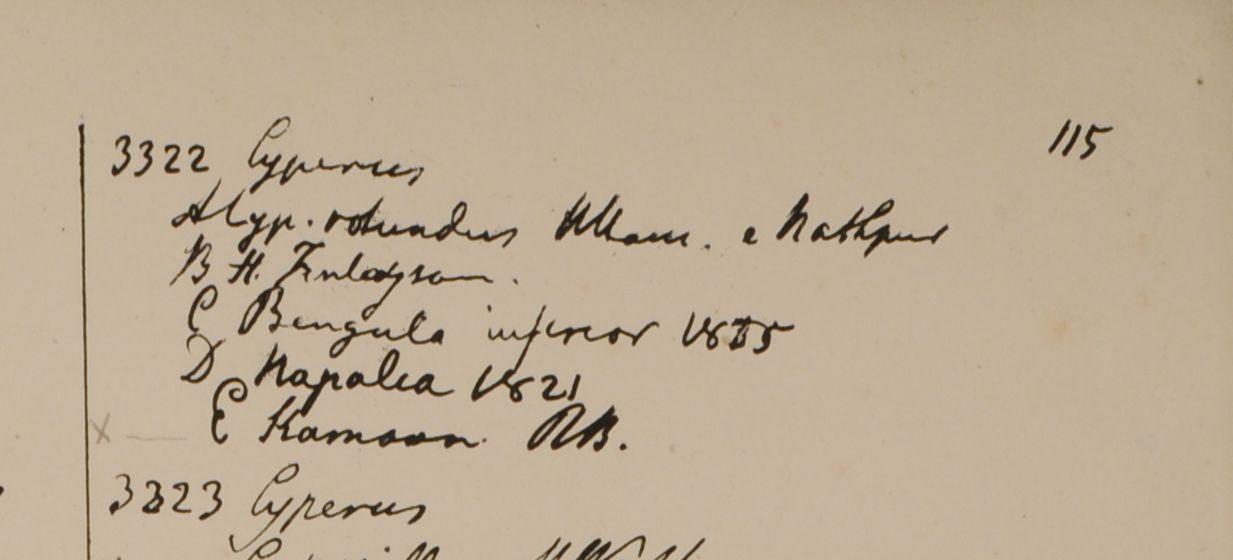 115
3322 Cyperus
A Cyp. rotundus Hham. e Nathpur
B H. Finlayson.
C Bengala inferior 1815
D Napalia 1821
X — E Kamaon RB.
3323 Cyperus